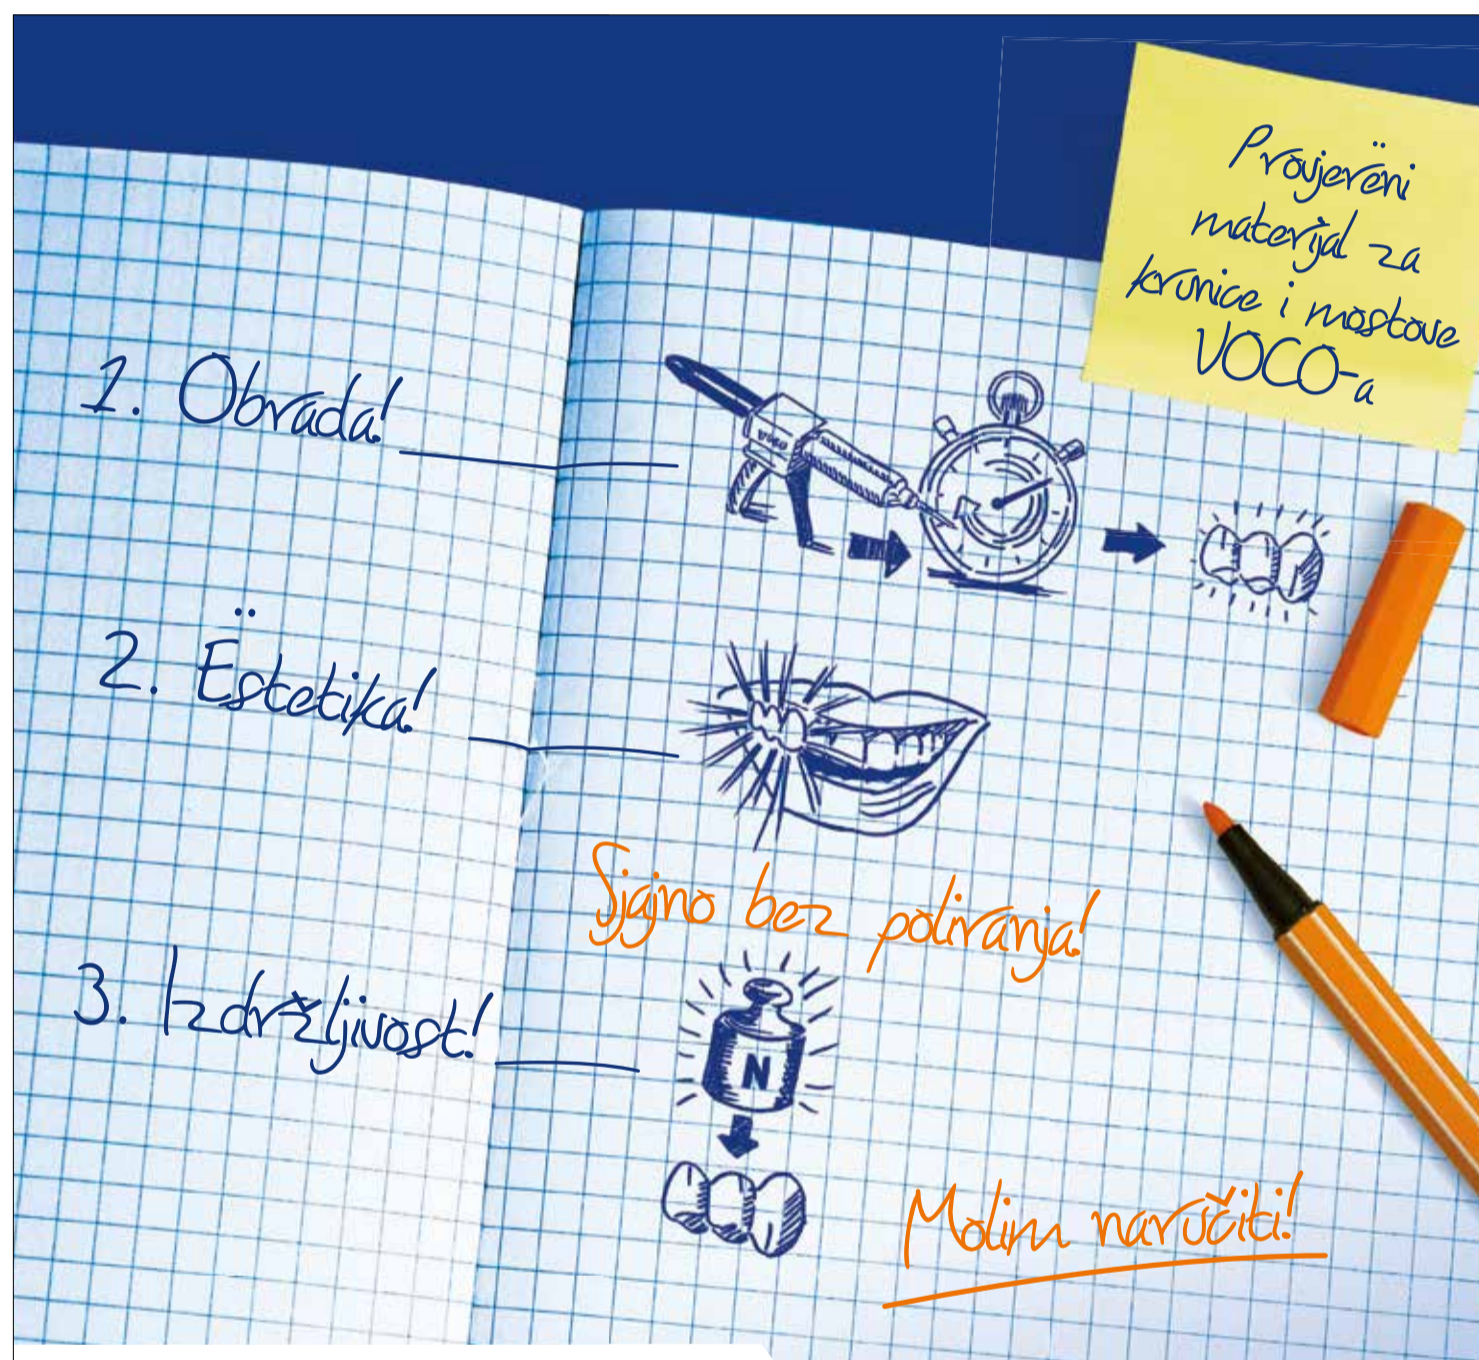 Provjerëni
materijal za
krunice i mostove
VOCO-a
1. Obrada!
VOCO
2. Ëstetika!
Sjajno bez poliranja!
3. Izdržljivost!
N
Molim naručiti!